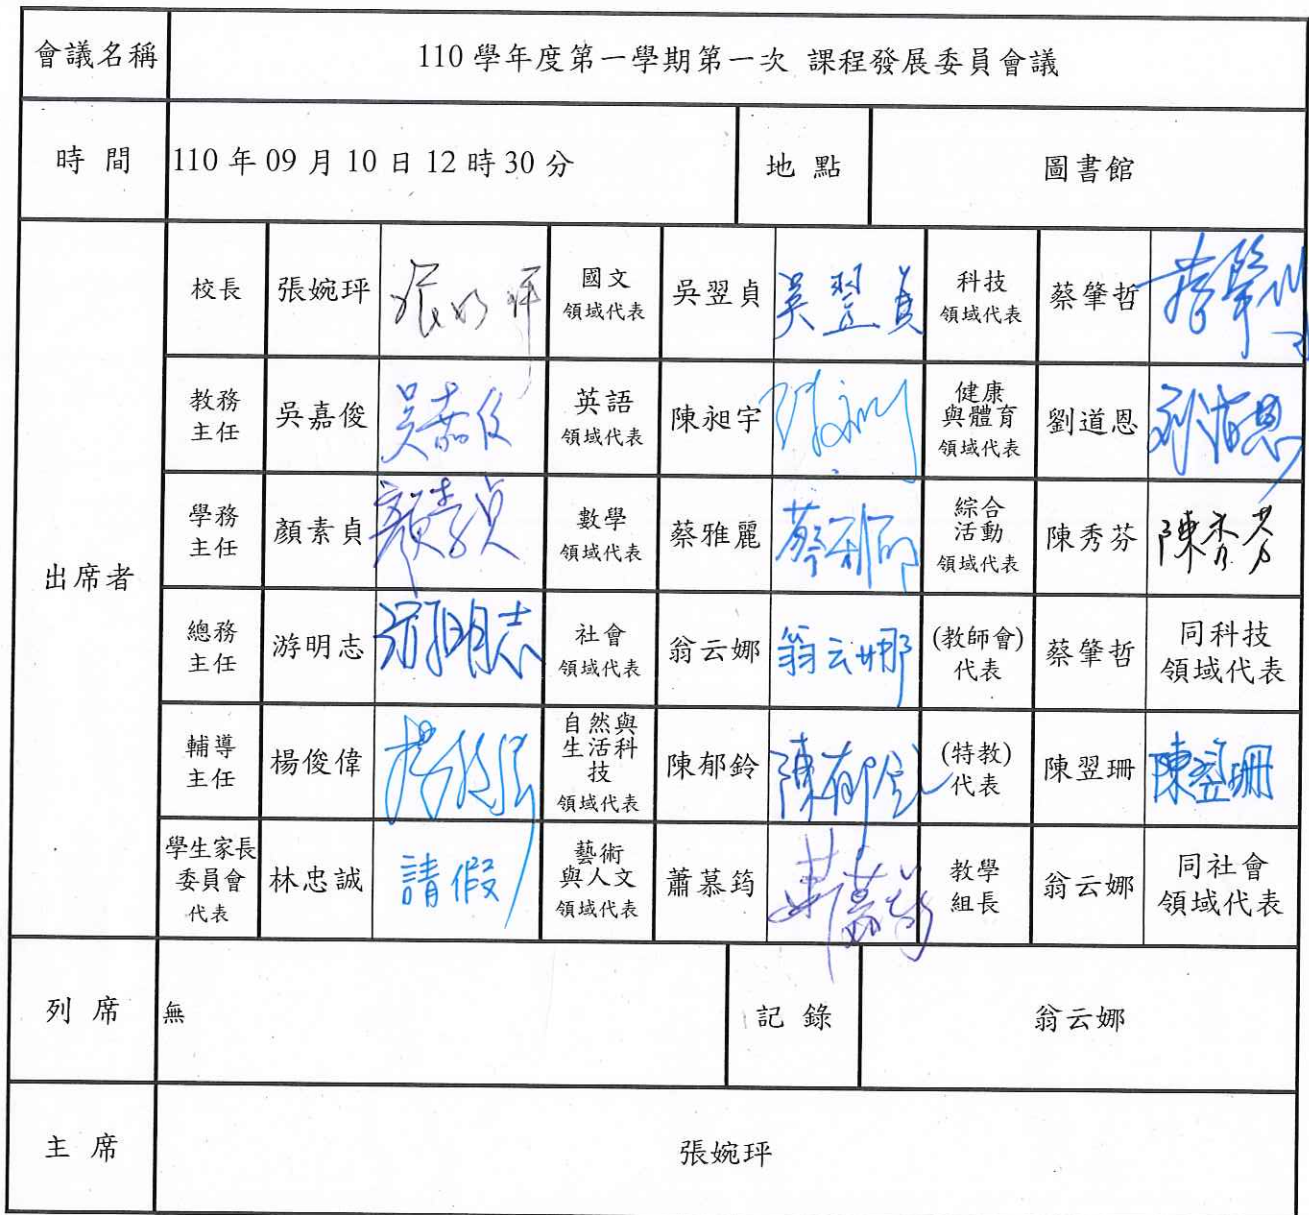 會議名稱
110 學年度第一學期第一次 課程發展委員會議
時 間
110 年 09 月 10 日 12 時 30 分
地 點
圖書館
出席者
校長
張婉玶
國文
領域代表
吳翌貞
吳翌貞
科技
領域代表
蔡肇哲
教務
主任
吳嘉俊
吳嘉俊
英語
領域代表
陳昶宇
健康
與體育
領域代表
劉道恩
刘道恩
學務
主任
顏素貞
顏素貞
數學
領域代表
蔡雅麗
綜合
活動
領域代表
陳秀芬
陳秀芬
總務
主任
游明志
游明志
社會
領域代表
翁云娜
翁云娜
(教師會)
代表
蔡肇哲
同科技
領域代表
輔導
主任
楊俊偉
自然與
生活科
技
領域代表
陳郁鈴
陳郁鈴
(特教)
代表
陳翌珊
陳翌珊
學生家長
委員會
代表
林忠誠
請假
藝術
與人文
領域代表
蕭慕筠
教學
組長
翁云娜
同社會
領域代表
列 席
無
記 錄
翁云娜
主 席
張婉玶